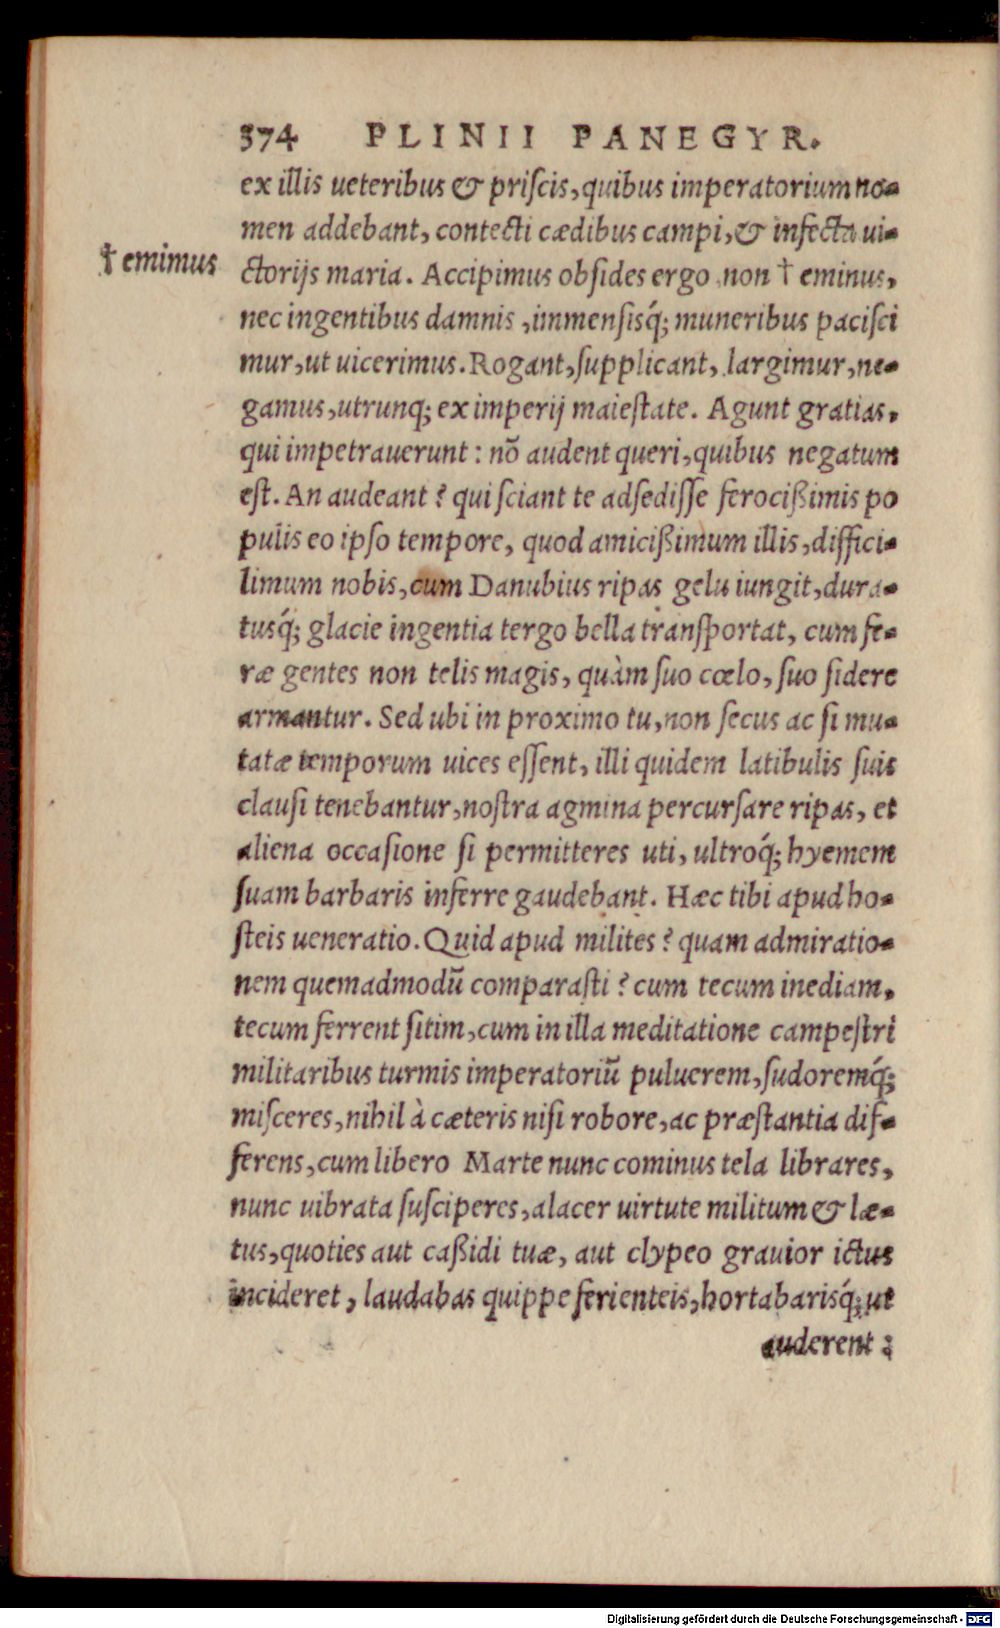 374 PLINII PANEGYR.
ex illis ueteribus & priſcis, quibus imperatorium no-
men addebant, contecti cædibus campi, & infecta ui-
† emimus
ctorijs maria. Accipimus obſides ergo non † eminus,
nec ingentibus damnis, immenſisq́; muneribus paciſci
mur, ut uicerimus. Rogant, ſupplicant, largimur, ne-
gamus, utrunq; ex imperij maieſtate. Agunt gratias,
qui impetrauerunt: nõ audent queri, quibus negatum
eſt. An audeant? qui ſciant te adſediſſe ferocißimis po
pulis eo ipſo tempore, quod amicißimum illis, diffici-
limum nobis, cum Danubius ripas gelu iungit, dura-
tusq́; glacie ingentia tergo bella tranſportat, cum fe-
ræ gentes non telis magis, quàm ſuo cœlo, ſuo ſidere
armantur. Sed ubi in proximo tu, non ſecus ac ſi mu-
tatæ temporum uices eſſent, illi quidem latibulis ſuis
clauſi tenebantur, noſtra agmina percurſare ripas, et
aliena occaſione ſi permitteres uti, ultroq́; hyemem
ſuam barbaris inferre gaudebant. Hæc tibi apud ho-
ſteis ueneratio. Quid apud milites? quam admiratio-
nem quemadmodũ comparaſti? cum tecum inediam,
tecum ferrent ſitim, cum in illa meditatione campeſtri
militaribus turmis imperatoriũ puluerem, ſudoremq́;
miſceres, nihil à cæteris niſi robore, ac præſtantia dif-
ferens, cum libero Marte nunc cominus tela librares,
nunc uibrata ſuſciperes, alacer uirtute militum & læ-
tus, quoties aut caßidi tuæ, aut clypeo grauior ictus
incideret, laudabas quippe ferienteis, hortabarisq́; ut
auderent:
Digitalisierung gefördert durch die Deutsche Forschungsgemeinschaft - DFG